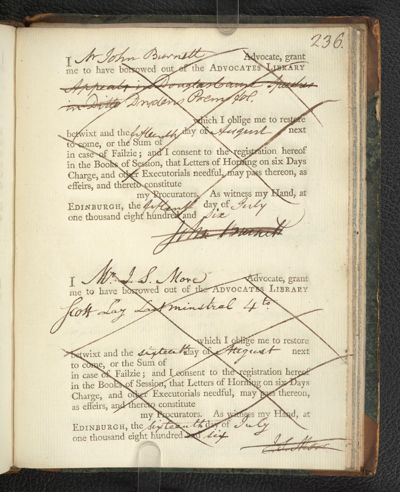 236.
I Mr John Burnett Advocate, grant
me to have borrowed out of the ADVOCATES LIBRARY
Appeals in Douglas Cause
in Ditto Drydens Poems fol.
which I oblige me to restore
betwixt and the fifteenth day of August next
to come, or the Sum of
in case of Failzie; and I consent to the registration hereof
in the Books of Session, that Letters of Horning on six Days
Charge, and other Executorials needful, may pass thereon, as
effeirs, and thereto constitute
my Procurators. As witness my Hand, at
EDINBURGH, the fifteenth day of July
one thousand eight hundred and six
John Burnett
I Mr. J. S. More Advocate, grant
me to have borrowed out of the ADVOCATES LIBRARY
Scott Lay Last minstral 4to
which I oblige me to restore
betwixt and the sixteenth day of August next
to come, or the Sum of
in case of Failzie; and I consent to the registration hereof
in the Books of Session, that Letters of Horning on six Days
Charge, and other Executorials needful, may pass thereon,
as effeirs, and thereto constitute
my Procurators. As witness my Hand, at
EDINBURGH, the sixteenth day of July
one thousand eight hundred and six
J. S. More